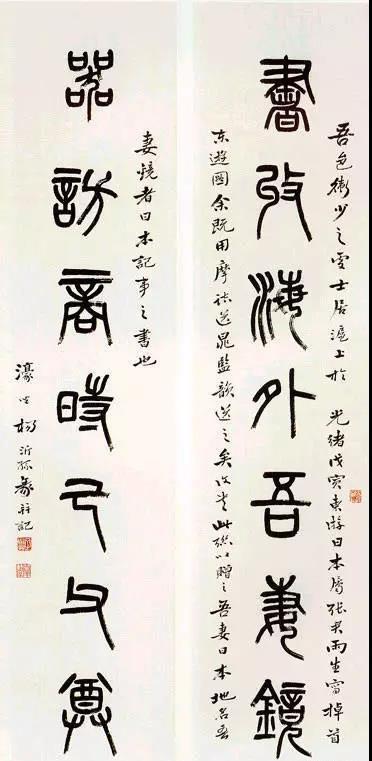 吾邑衛少之居滬上於 光緒戊寅東游日本屬張君雨生寄掉首
書攷海外吾妻鏡
東遊圖余既用摩詰送晁監韻送之矣此聯以贈之吾妻日本地名吾
妻鏡者日本記事之書也
器訪商時己父尊
濠叟楊沂孫篆并記